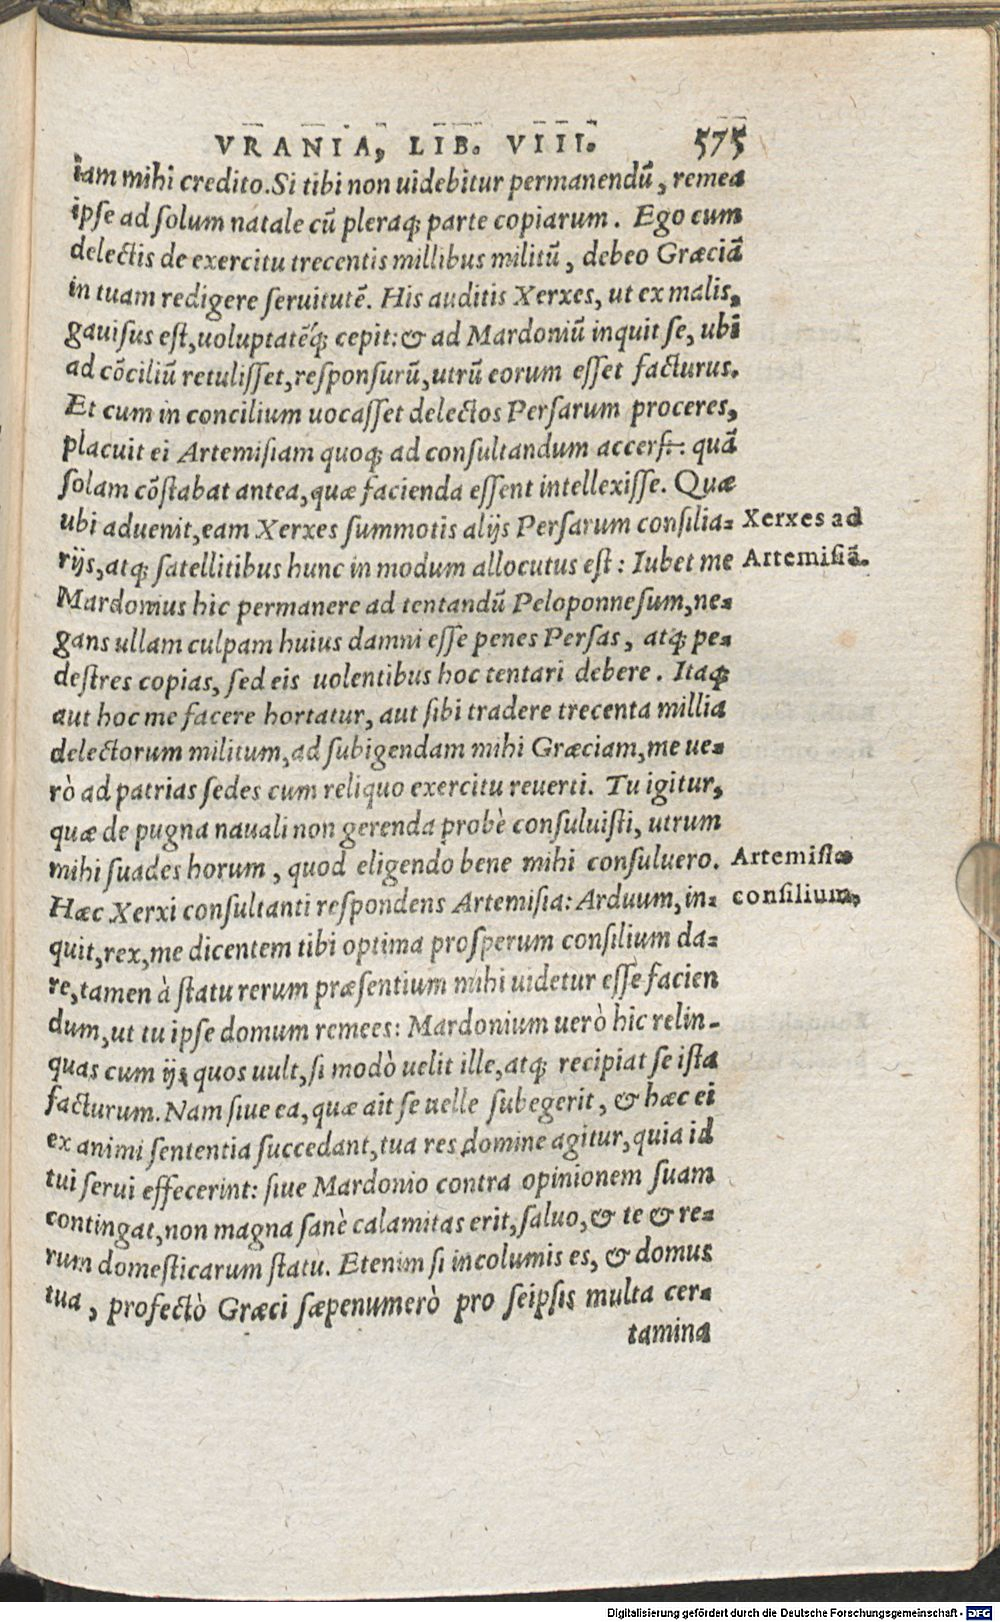 VRANIA, LIB. VIII. 575
iam mihi credito. Si tibi non uidebitur permanendū, remea
ipse ad solum natale cū pleraq; parte copiarum. Ego cum
delectis de exercitu trecentis millibus militū, debeo Græciā
in tuam redigere seruitutē. His auditis Xerxes, ut ex malis,
gauisus est, uoluptatēq́; cepit: & ad Mardoniū inquit se, ubi
ad cōciliū retulisset, responsurū, utrū eorum esset facturus.
Et cum in concilium uocasset delectos Persarum proceres,
placuit ei Artemisiam quoq; ad consultandum quā
solam cōstabat antea, quæ facienda essent intellexisse. Quæ
ubi aduenit, eam Xerxes summotis alijs Persarum consilia-
rijs, atq; satellitibus hunc in modum allocutus est: Iubet me
Mardonius hic permanere ad tentandū Peloponnesum, ne-
gans ullam culpam huius damni esse penes Persas, atq; pe-
destres copias, sed eis uolentibus hoc tentari debere. Itaq;
aut hoc me facere hortatur, aut sibi tradere trecenta millia
delectorum militum, ad subigendam mihi Græciam, me ue-
rò ad patrias sedes cum reliquo exercitu reuerti. Tu igitur,
quæ de pugna nauali non gerenda probè consuluisti, utrum
mihi suades horum, quod eligendo bene mihi consuluero.
Hæc Xerxi consultanti respondens Artemisia: Arduum, in-
quit, rex, me dicentem tibi optima prosperum consilium da-
re, tamen à statu rerum præsentium mihi uidetur esse facien
dum, ut tu ipse domum remees: Mardonium uerò hic relin-
quas cum ijs quos uult, si modò uelit ille, atq; recipiat se ista
facturum. Nam siue ea, quæ ait se uelle subegerit, & hæc ei
ex animi sententia succedant, tua res domine agitur, quia id
tui serui effecerint: siue Mardonio contra opinionem suam
contingat, non magna sanè calamitas erit, saluo, & te & re-
rum domesticarum statu. Etenim si incolumis es, & domus
tua, profectò Græci sæpenumerò pro seipsis multa cer-
tamina
Xerxes ad
Artemisiā.
Artemisiæ
consilium.
Digitalisierung gefördert durch die Deutsche Forschungsgemeinschaft - DFG